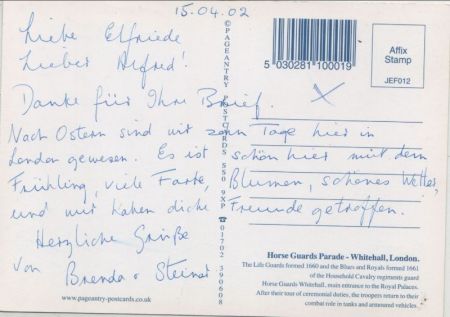 15.04.02
Liebe Elfriede
Lieber Alfred!
Danke für Ihre Brief.
Nach Ostern sind wir zehn Tage hier in
London gewesen. Es ist schön hier mit dem
Frühling, viele Farbe, Blumen, schönes Wetter,
und wir haben Freunde getroffen.
Herzliche Grüße
von Brenda &
© PAGEANTRY POSTCARDS SS0 9XP ☎ 01702 390608
5 030281 100019
Affix
Stamp
JEF012
Horse Guards Parade - Whitehall, London.
The Life Guards formed 1660 and the Blues and Royals formed 1661
of the Household Cavalry regiments guard
Horse Guards Whitehall, main entrance to the Royal Palaces.
After their tour of ceremonial duties, the troopers return to their
combat role in tanks and armoured vehicles.
www.pageantry-postcards.co.uk